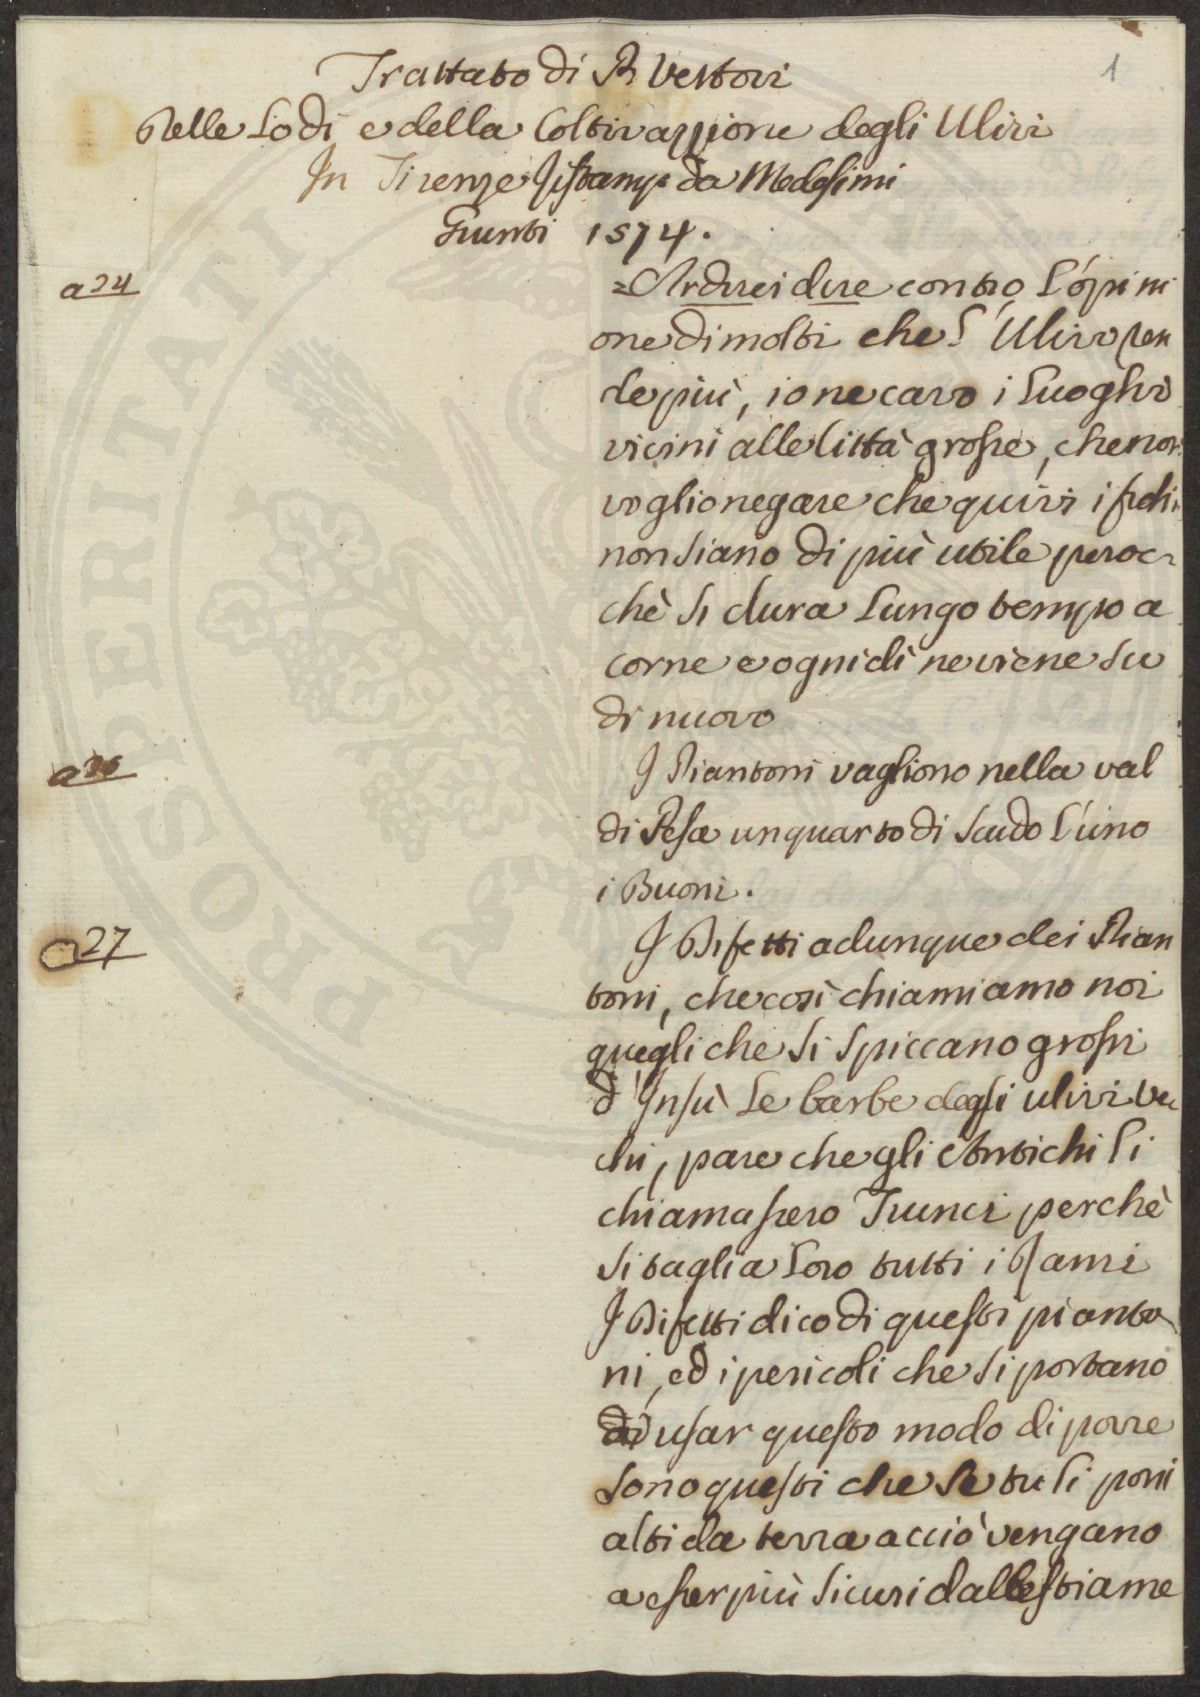 1
Trattato di P. Vettori
Delle Lodi e della Coltivazzione degli Ulivi
In Firenze ristamp. da Medesimi
Giunti 1574.
a 24
= Ardirei dire contro l'opini
one di molti che l'Ulivo ren
de più, io ne cavo i luoghi
vicini alle Città grosse, che non
voglio negare che quivi i fichi
non siano di più utile peroc=
chè si dura lungo tempo a
corne e ogni dì ne viene su
di nuovo
a 26
I Piantoni vagliono nella val
di Pesa un quarto di scudo l'uno
i Buoni.
a 27
I Difetti adunque dei Pian
toni, che così chiamiamo noi
quegli che si spiccano grossi
d'insù le barbe degli ulivi vec
chi, pare che gli Antichi li
chiamassero Trunci perchè
si taglia loro tutti i Rami
I Difetti dico di questi pianto
ni, ed i pericoli che si portano
di usar questo modo di porre
sono questi che se tu li poni
alti da terra acciò vengano
a esser più sicuri dal bestiame
PROSPERITATI